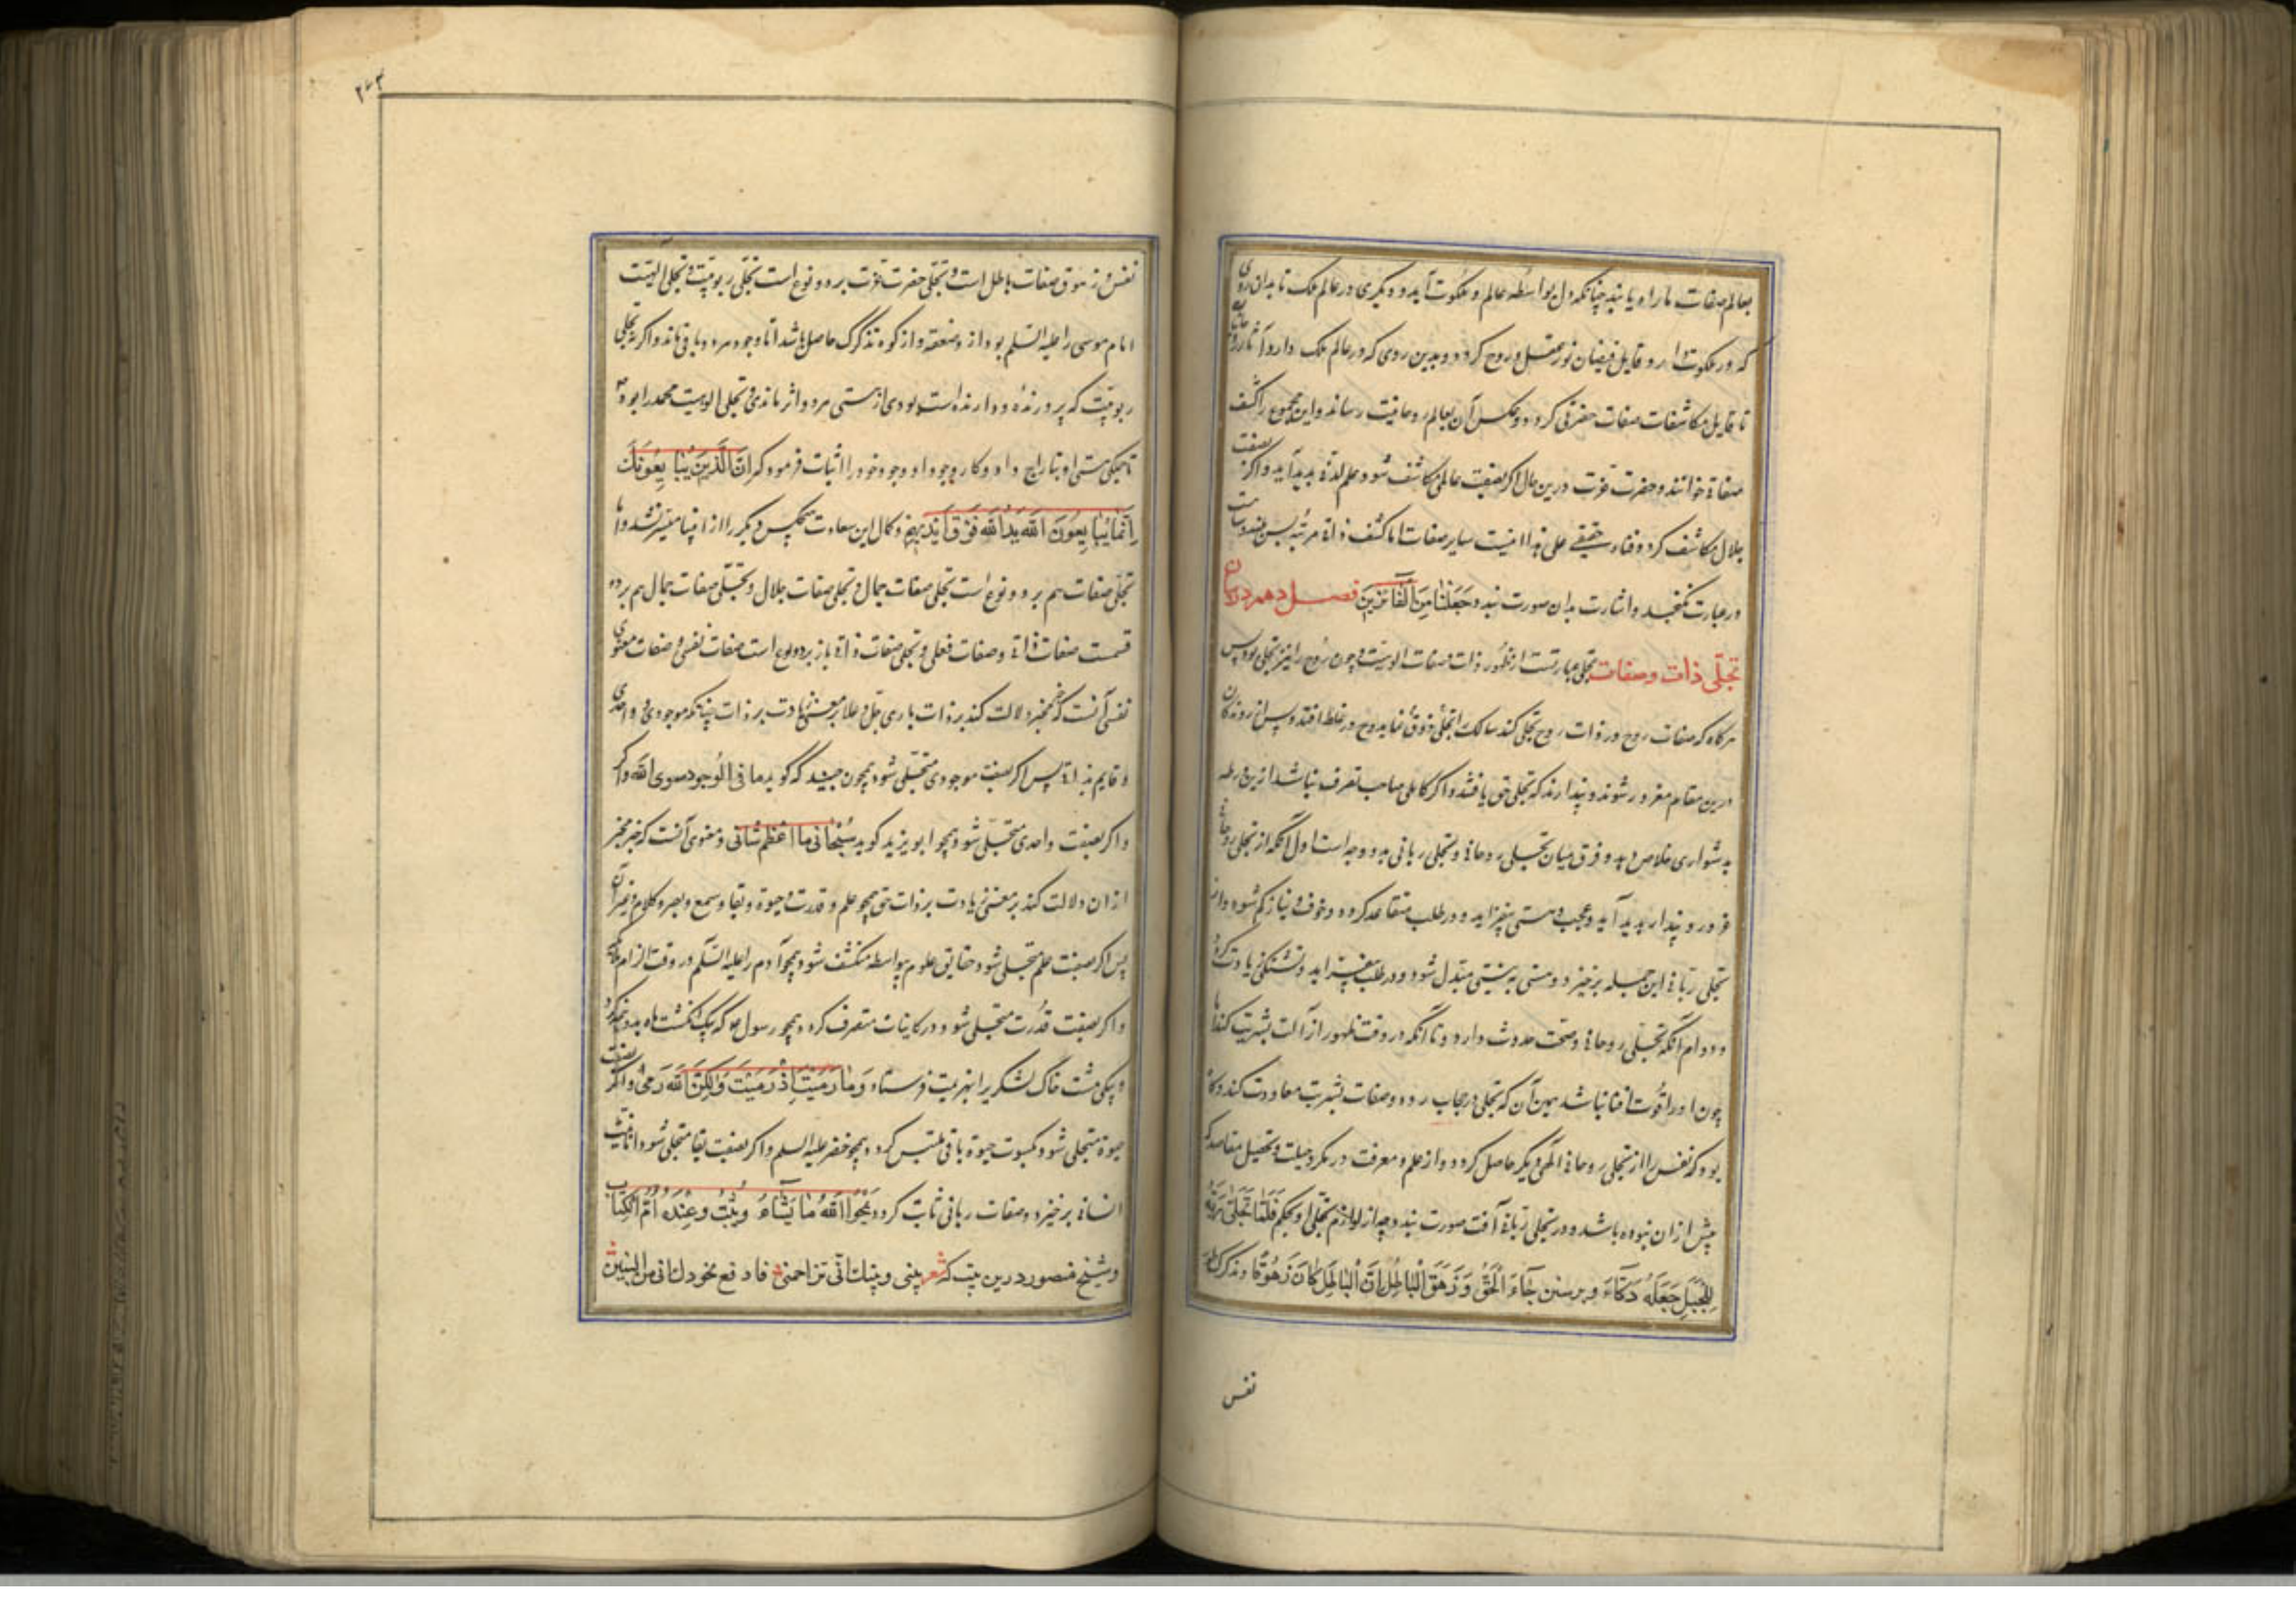 بعالم صفات ما راه یابند چنانکه دل بواسطه عالم و ملکوت آید و دیگری در عالم ملک تا بدان روی
که در ملکوت دارد قابل فیضان نور عقل و روح گردد و بدین روی که در عالم ملک دارد آثار
تا قابل مکاشفات صفات حضرتی گردد و عکس آن بعالم روحانیت رساند و این مجموع را کشف
صفاتی خوانند و حضرت عزت درین حال اگر بصفت عالمی مکاشف شود علم لدنی پدید آید و اگر بصفت
جلال مکاشف گردد فناء حقیقی علی هذا سایر صفات اما کشف ذاتی مرتبه بس بلند و
در عبارت نگنجد و اشارت بدان صورت نبدد وَجَعَلَنَا مِنَ الْفَائِزِينَ فصل دهم در بیان
تجلی ذات و صفات تجلی عبارتست از ظهور ذات و صفات الوهیت و چون روح را نیز تجلی بود پس
هرگاه که صفات روح در ذات روح تجلی کند سالک را تجلی ذوق نماید و در غلط افتد و بس از روندگان
درین مقام مغرور شوند و پندارند که تجلی حق یافتند و اگر کاملی صاحب تصرف نباشد ازین ورطه
بدشواری خلاص دهد و فرق میان تجلی روحانی و تجلی ربانی بدو وجه است اول آنکه از تجلی روحانی
غرور و پندار پدید آید و عجب و هستی بیفزاید و در طلب متقاعد گردد و خوف و نیاز کم شود و از
تجلی ربانی این جمله برخیزد و هستی به نیستی مبدل شود و در طلب بیفزاید و تشنگی زیادت گردد
و دوام آنکه تجلی روحانی وصمت حدوث دارد و تا آنکه در وقت ظهور ازالت بشریت کند اما
چون او را قوت افنا نباشد همین آن که تجلی در حجاب رود و صفات بشریت معاودت کند و گاه
بود که نفس را از تجلی روحانی آلتی دیگر حاصل گردد و از علم و معرفت در مکر و حیلت و تحصیل مقاصد که
پیش از ان نبوده باشد و در تجلی ربانی آفت صورت نبدد چه از لوازم تجلی او بحکم فَلَمَّا تَجَلَّى رَبُّهُ
لِلْجَبَلِ جَعَلَهُ دَكَّاءَ و برسنن جَاءَ الْحَقُّ وَزَهَقَ الْبَاطِلُ اِنَّ الْبَاطِلَ كَانَ زَهُوقًا تدکدک طور
نفس
۲۷۳
نفس و زهوق صفات باطل است و تجلی حضرت عزت بر دو نوع است تجلی ربوبیت و تجلی الهیت
اما موسی را علیه السلم بود از و صعقه و از کوه تدکدک حاصل باشد اما وجود هر دو باقی ماند و اگر نه تجلی
ربوبیت که پرورنده و دارنده است بودی از هستی هر دو اثر نماندی و تجلی الوهیت محمد را بود
تا جمکی هستی او بتاراج داد و کار وجود او وجود خود را اثبات فرمود که اِنَّ الَّذِينَ يُبَايِعُونَكَ
اِنَّمَا يُبَايِعُونَ اللّٰهَ يَدُ اللّٰهِ فَوْقَ اَيْدِيهِمْ و کمال این سعادت هیچکس دیگر را از انبیا میسر نشد و اما
تجلی صفات هم بر دو نوع است تجلی صفات جمال و تجلی صفات جلال و تجلی صفات جمال هم بر دو
قسمت صفات ذاتی و صفات فعلی و تجلی صفات ذاتی باز بر دو نوع است صفات نفسی و صفات معنوی
نفسی آنست که خبر مخبر دلالت کند بر ذات باری جل و علا بر معنی زیادت بر ذات چنانکه موجودی و واحدی
و قایم بذاتی پس اگر بصفت موجودی متجلی شود همچون جنید که گوید ما فی الوجود سوی اللّٰه و اگر
و اگر بصفت واحدی متجلی شود همچو ابو یزید گوید سُبْحَانِي مَا اَعْظَمَ شَأنِي و معنوی آنست که خبر مخبر
از ان دلالت کند بر معنی زیادت بر ذات حق همچو علم و قدرت و حیوة و بقا و سمع و بصر و کلام و غیر آن
پس اگر بصفت علم متجلی شود حقایق علوم بیواسطه منکشف شود همچو آدم را علیه السلم در وقت الزام ملائکه
و اگر بصفت قدرت متجلی شود در کاینات متصرف گردد همچو رسول ص که بیک انگشت ماه بدو نیم کرد
و بیکی مشت خاک لشکری را هزیمت فرستاد وَمَا رَمَيْتَ اِذْ رَمَيْتَ وَلَكِنَّ اللّٰهَ رَمَى و اگر بصفت
حیوة متجلی شود بکسوت حیوة باقی ملتبس گردد همچو خضر علیه السلم و اگر بصفت بقا متجلی شود انانیت
انسانی برخیزد و صفات ربانی ثابت گردد يَمْحُوا اللّٰهُ مَا يَشَاءُ وَيُثْبِتُ وَعِنْدَهُ اُمُّ الْكِتَابِ
و شیخ منصور درین بیت که شعر بینی و بینک انی تزاحمنی فادفع بجودک انی من البین